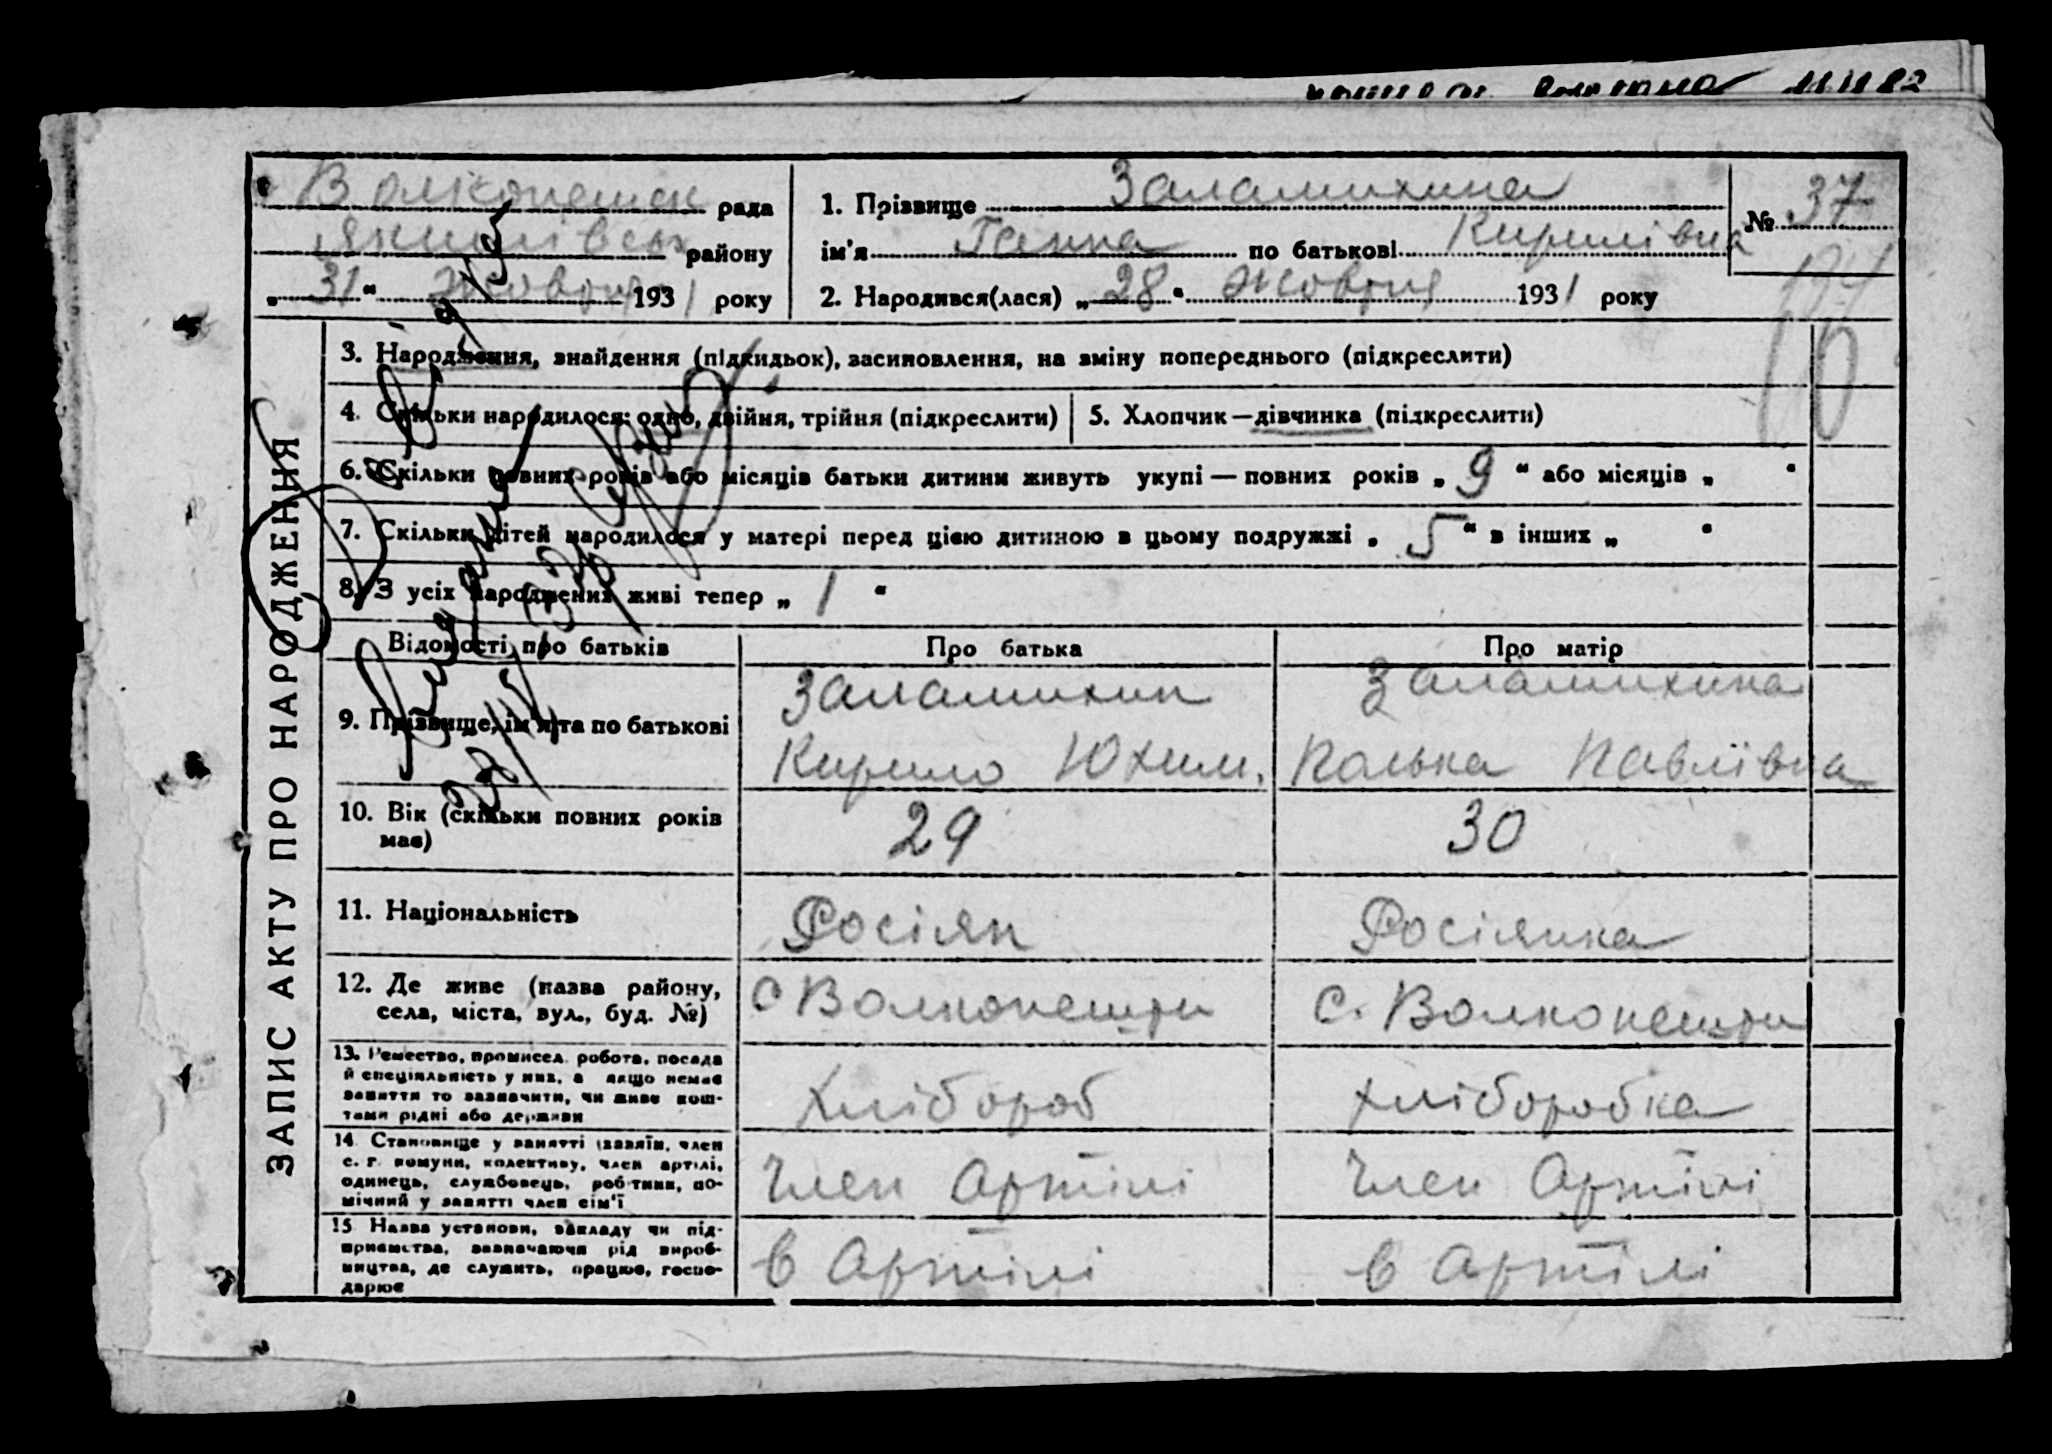 11 11 82
Волконешск рада
Якимівськ району
„31“ Жовтня 1931 року
1. Прізвище Заламихина
ім'я Ганна по батькові Кирилівна
2. Народився(лася) „28“ Жовтня 1931 року
№ 37
ЗАПИС АКТУ ПРО НАРОДЖЕННЯ
3. Народження, знайдення (підкидьок), засиновлення, на зміну попереднього (підкреслити)
4. Скільки народилося: одно, двійня, трійня (підкреслити)
5. Хлопчик—дівчинка (підкреслити)
6. Скільки повних років або місяців батьки дитини живуть укупі — повних років „9“ або місяців „ “
7. Скільки дітей народилося у матері перед цією дитиною в цьому подружжі „5“ в інших „ “
8. З усіх народжених живі тепер „1“
Відомості про батьків Про батька Про матір
9. Прізвище, ім'я та по батькові
Заламихин
Кирило Юхим.
Заламихина
Павлівна
10. Вік (скільки повних років
має)
29 30
11. Національність Росіян Росіянка
12. Де живе (назва району,
села, міста, вул., буд. №)
с Волконешти с. Волконешти
13. Ремество, промисел, робота, посада
й спеціяльність у них, а якщо немає
заняття то зазначити, чи живе кош-
тами рідні або держави
Хлібороб Хлібopобка
14. Становище у занятті (хазяїн, член
с. г. комуни, колективу, член артілі,
одинець, службовець, робітник, по-
мічний у занятті член сім'ї
Член Артілі Член Артілі
15 Назва установи, закладу чи під-
приємства, зазначаючи рід вироб-
ництва, де служить, працює, госпо-
дарює
в Артілі в Артілі